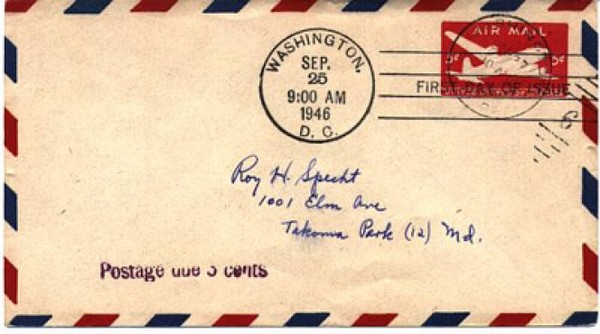 AIR MAIL
5¢ 5¢
WASHINGTON,
SEP.
25
9:00 AM
1946
D. C.
FIRST DAY OF ISSUE
6
Roy H. Specht
1001 Elm Ave
Takoma Park (12) Md.
Postage due 3 cents